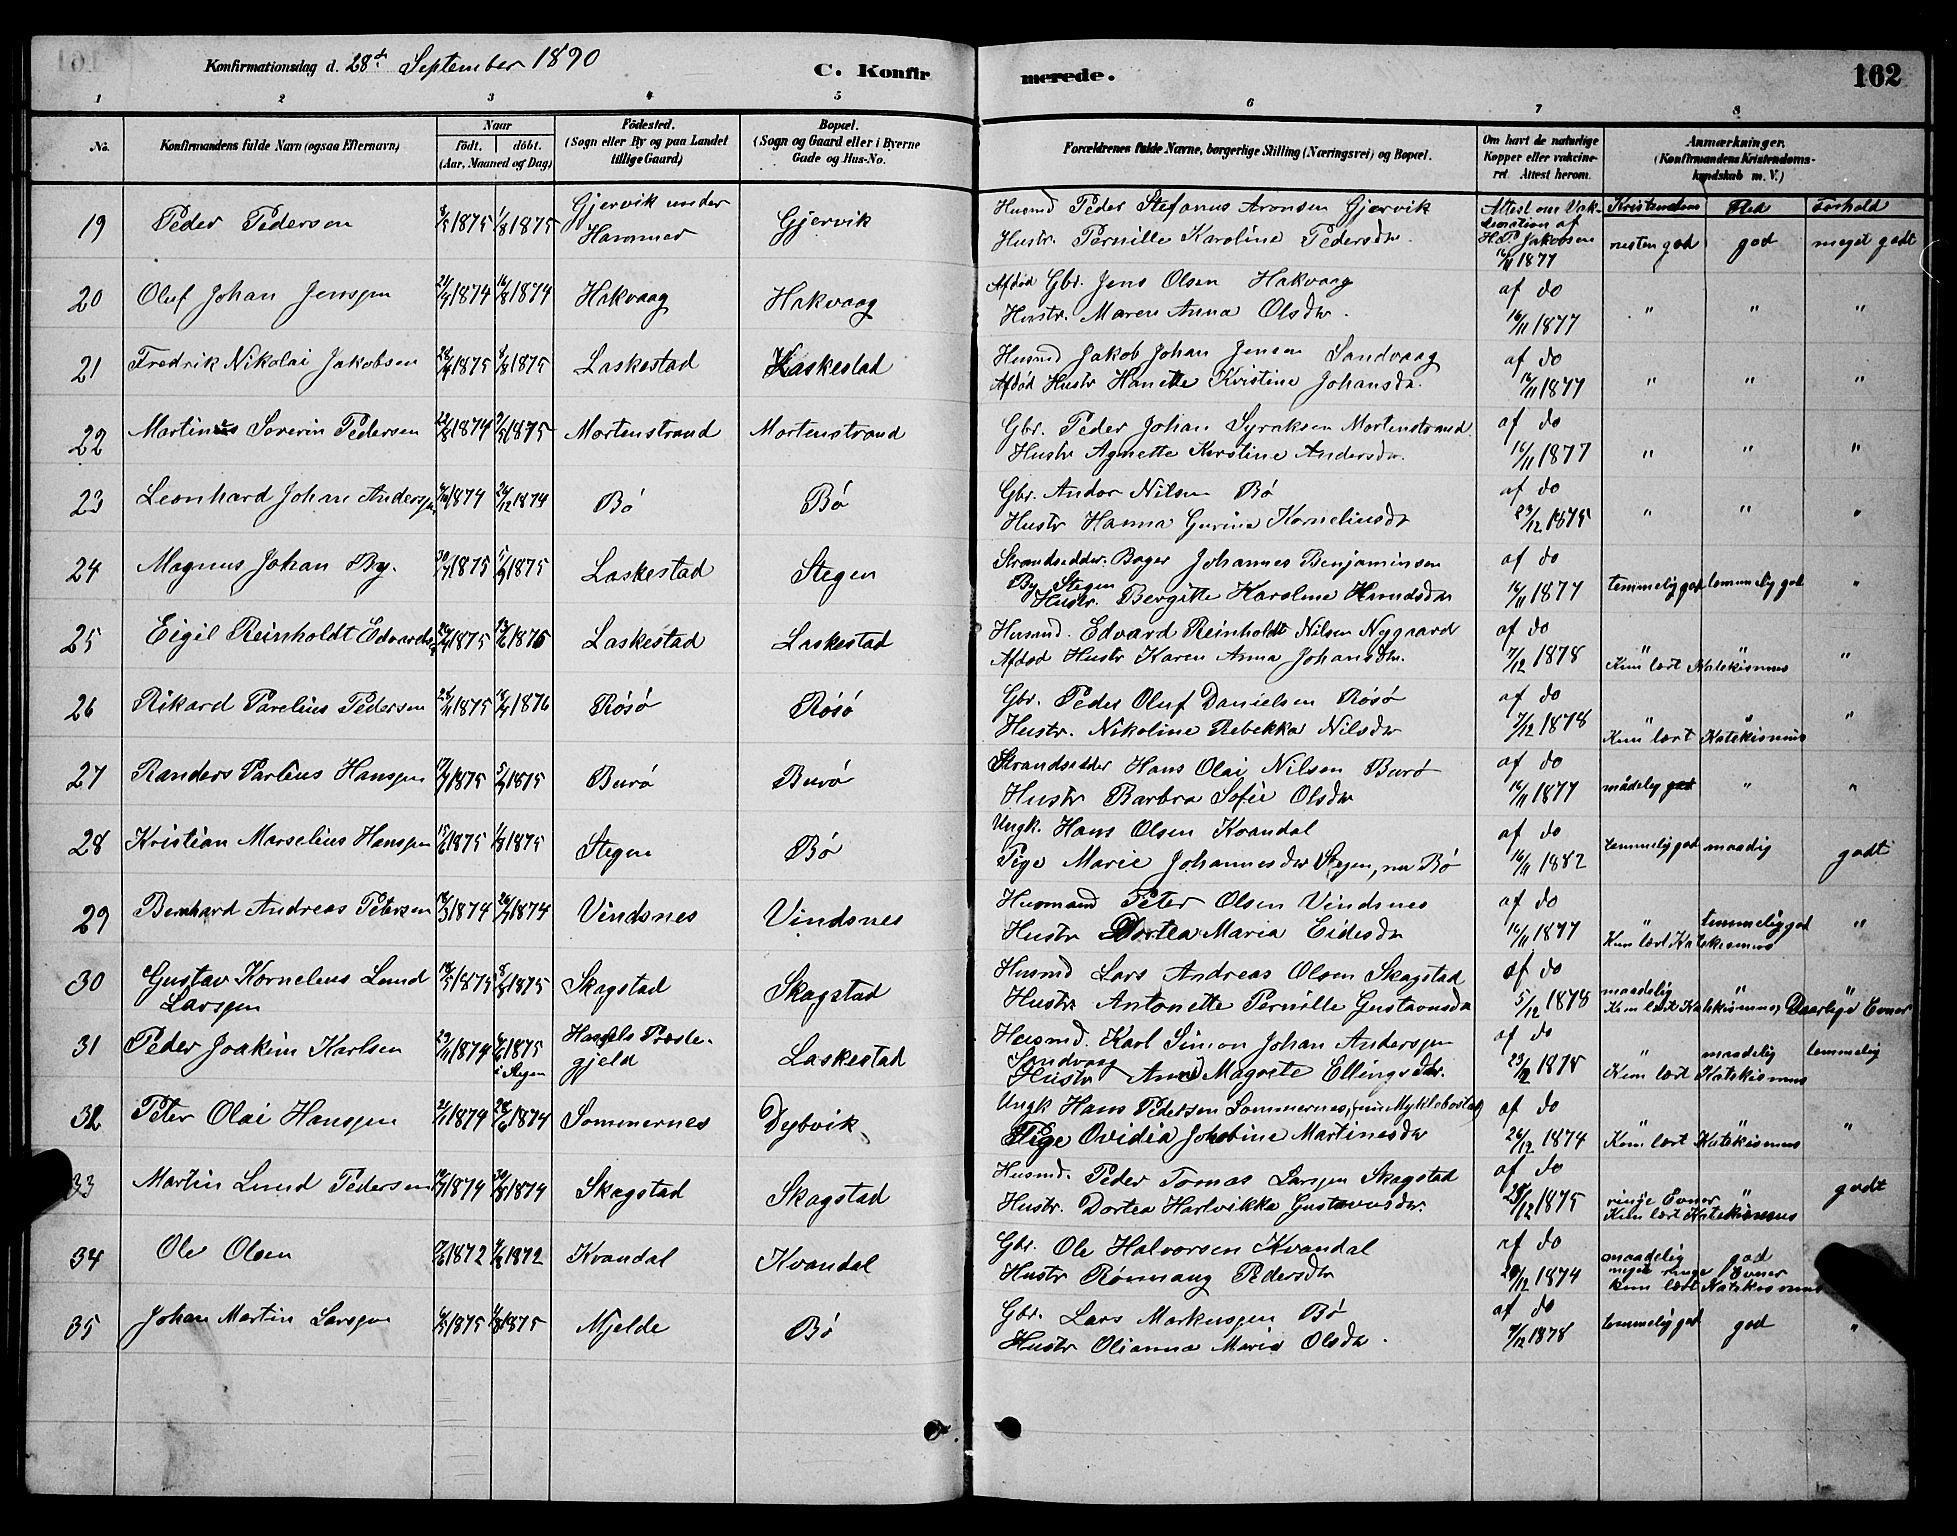 Konfirmationsdag d. 28d September 1890
C. Konfirmerede.
162
1 2 3 4 5 6 7 8
No. Konfirmandens fulde Navn (ogsaa Efternavn) Naar födt. döbt. (Aar, Maaned og Dag) Födested. (Sogn eller By og paa Landet tillige Gaard) Bopæl. (Sogn og Gaard eller i Byerne Gade og Hus-No. Forældrenes fulde Navne, borgerlige Stilling (Næringsvei) og Bopæl. Om havt de naturlige Kopper eller vakcineret. Attest herom. Anmærkninger. (Konfirmandens Kristendomskundskab m. V.)
19 Peder Pedersen 1875 1/8 1875 Gjervik under Hammer Gjervik Husmd Peder Stefanus Aronsen Gjervik Attest om Vakcination af H.P. Jakobsen 16/11 1877 Kristendom Flid Forhold
Hustr. Pernille Karoline Pedersdtr. nesten god god meget godt
20 Oluf Johan Jenssen 1874 16/8 1874 Hakvaag Hakvaag Afdød Gbr. Jens Olsen Hakvaag af do
Hustr. Maren Anna Olsdtr. 16/11 1877 " " "
21 Fredrik Nikolai Jakobsen 1875 1875 Laskestad Laskestad Husmd Jakob Johan Jensen Sandvaag af do
Afdød Hustr Hanette Kristine Johansdtr. 16/11 1877 " " "
22 Martinus Severin Pedersen 1874 1875 Mortenstrand Mortenstrand Gbr. Peder Johan Syraksen Mortenstrand af do
Hustr Agnette Kirstine Andersdtr. 16/11 1877 " " "
23 Leonhard Johan Anderssen 1874 26/12 1874 Bö Bö Gbr. Andor Nilsen Bö af do
Hustr Hanna Gurina Korneliusdtr 23/12 1875 " " "
24 Magnus Johan By. 1875 5/9 1875 Laskestad Stegen Strandsidder. Bager Johannes Benjaminsen af do
By Stegen
Hustr. Bergitte Karoline Hansdtr 16/11 1877 temmelig god temmelig god "
25 Eigil Reinholdt Edvardsen 1875 1875 Laskestad Laskestad Husmd. Edvard Reinholdt Nilsen Nygaard af do
Afdød Hustr Karen Anna Johansdtr. 7/12 1878 " " "
Kun lært Katekismus
26 Rikard Parelius Pedersen 1875 1876 Rösö Rösö Gbr. Peder Oluf Danielsen Rösö af do
Hustr. Nikoline Rebekka Nilsdtr 7/12 1878 " " "
Kun lært Katekismus
27 Randers Parlius Hanssen 1875 5/9 1875 Burö Burö Strandsidder Hans Olai Nilsen Burö af do
Hustr Barbra Sofie Olsdtr 16/11 1877 mådelig god " "
28 Kristian Marselius Hanssen 1875 1875 Stegen Bö Ungk. Hans Olsen Kvandal af do
Pige Marie Johannesdtr Stegen, nu Bö 16/11 1882 temmelig god maadig godt
29 Bernhard Andreas Petersen 1874 26/7 1874 Vindsnes Vindsnes Husmand Peter Olsen Vindsnes af do
Hustr Dortea Maria Eidesdtr 16/11 1877 " temmelig god "
Kun lært Katekismus
30 Gustav Kornelius Lund Larssen 1875 1875 Skagstad Skagstad Husmd Lars Andreas Olsen Skagstad af do
Hustr. Antonette Pernille Gustavusdtr 5/12 1878 maadelig " "
Kun lært Katekismus, Daarlige Evner
31 Peder Joakim Karlsen 1874 1875 i Stegen Præstegjeld Laskestad Husmd. Karl Simon Johan Anderssen af do
Sandvaag
Hustr Anne Magrete Ellingsdtr. 1878 " maadelig temmelig
Kun lært Katekismus
32 Peter Olai Hanssen 1874 1874 Sommernes Dybvik Ungk Hans Pedersen Sommernes, (nu Myklebostad) af do
Pige Ovidia Jakobine Martinesdtr 26/12 1874 " " "
Kun lært Katekismus
33 Martin Lund Pedersen 1874 1874 Skagstad Skagstad Husmd. Peder Tomas Larssen Skagstad af do
Hustr. Dortea Hartvikka Gustavusdtr. 1875 ringe Evner " godt
Kun lært Katekismus
34 Ole Olsen 1872 1872 Kvandal Kvandal Gbr. Ole Halvorsen Kvandal af do
Hustr Rönnaug Pedersdtr 1874 maadelig god
meget ringe Evner
kun lært Katekismus
35 Johan Martin Larssen 1875 1875 Mjelde Bö Gbr. Lars Markussen Bö af do
Hustr Olianna Maria Olsdtr. 7/12 1878 temmelig god god "